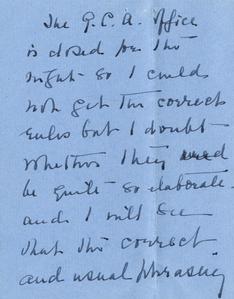 The G.C.A. office
is closed for the
night so I could
not get the correct
rules but I doubt
whether they need
be quite so elaborate.
and I will see
that the correct
and usual phrasing